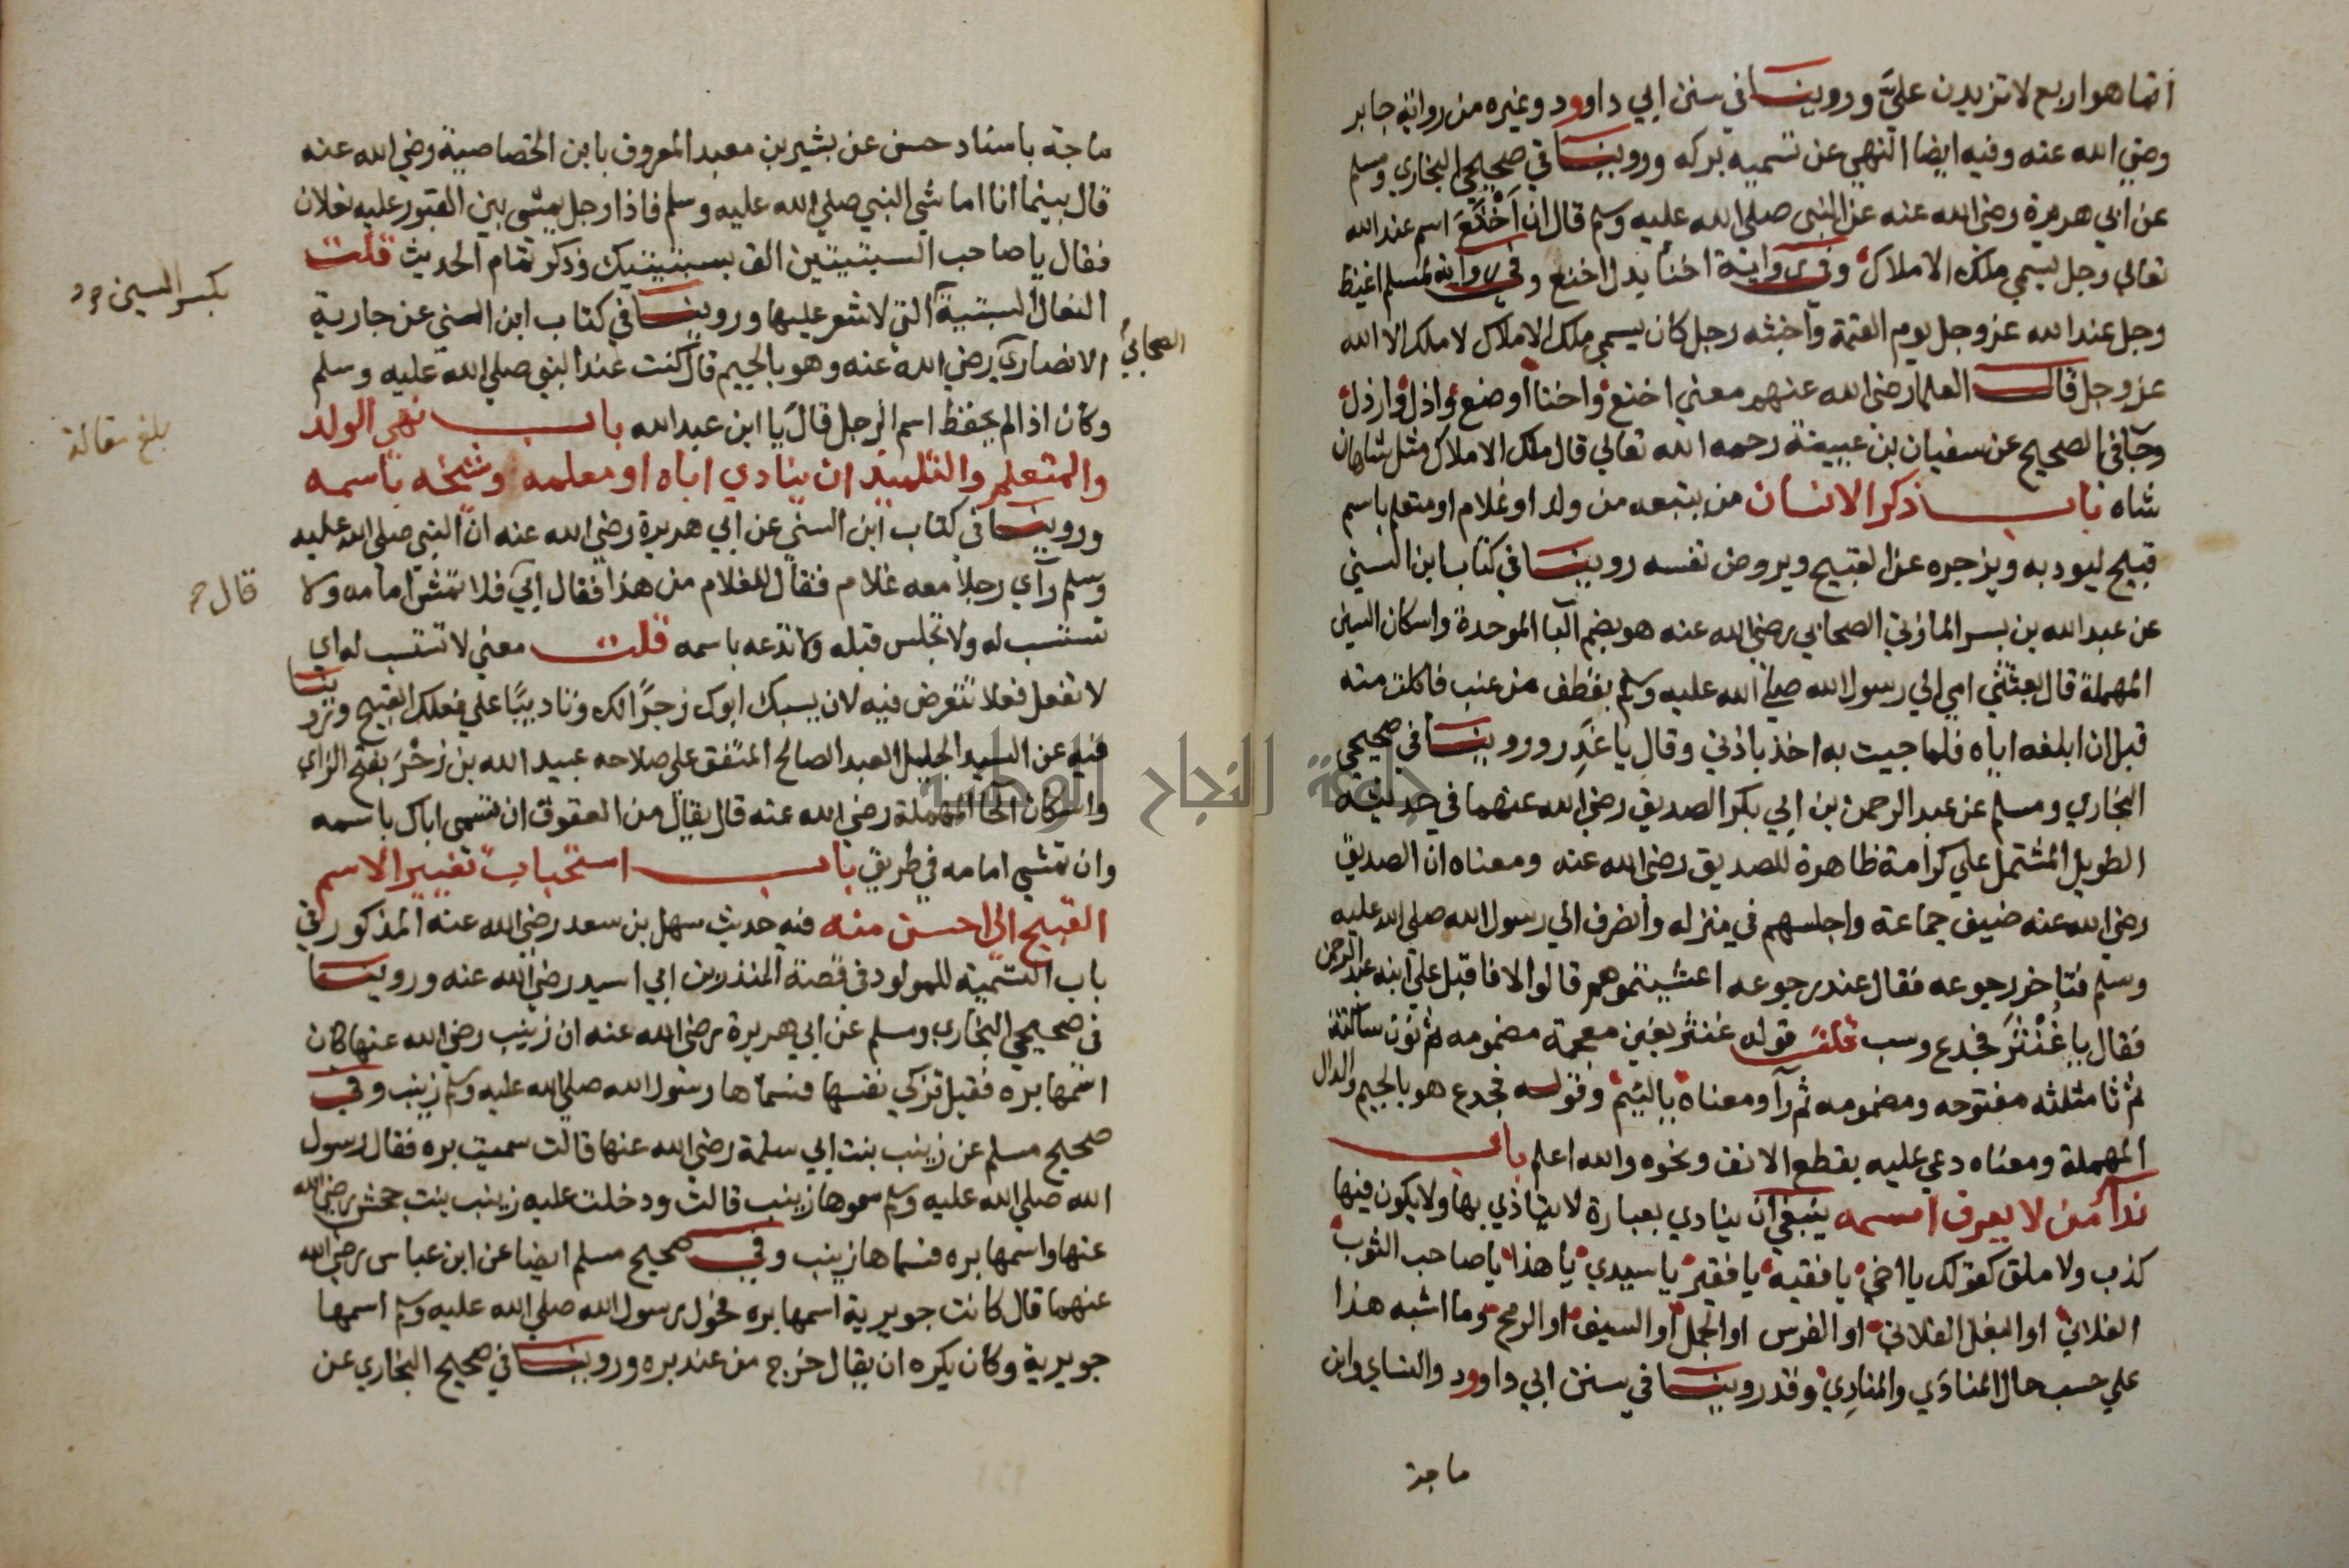 انما هو اربع لا تزيدن عليّ وروينا في سنن ابي داوود وغيره من رواية جابر
رضي الله عنه وفيه ايضا النهي عن تسميه بركه وروينا في صحيحي البخاري ومسلم
عن ابي هريرة رضي الله عنه عن النبي صلي الله عليه وسلم قال ان اَخْنَعَ اسم عند الله
تعالي رجل تسمي ملك الاملاك وفي رواية اخنأ بدل اخنع وفي رواية لمسلم اغيظ
رجل عند الله عز وجل يوم القيمة واخبثه رجل كان يسمي ملك الاملاك لا ملك الا الله
عز وجل قال العلما رضي الله عنهم معني اخنع واخنا اوضع واذل وارذل
وجآ في الصحيح عن سفيان بن عيينة رحمه الله تعالي قال ملك الاملاك مثل شاهان
شاه باب ذكر الانسان من يتبعه من ولد او غلام او متعلم باسم
قبيح ليودبه ويزجره عن القبيح ويروض نفسه روينا في كتاب ابن السني
عن عبد الله بن بسر المازني الصحابي رضي الله عنه هو بضم البآ الموحدة واسكان السين
المهملة قال بعثتني امي الي رسول الله صلي الله عليه وسلم بقطف من عنب فاكلت منه
قبل ان ابلغه اياه فلما جيت به اخذ باذني وقال يا غُدَر وروينا في صحيحي
البخاري ومسلم عن عبد الرحمن بن ابي بكر الصديق رضي الله عنهما في حديثه
الطويل المشتمل علي كرامة ظاهرة للصديق رضي الله عنه ومعناه ان الصديق
رضي الله عنه ضيف جماعة واجلسهم في منزله وانصرف الي رسول الله صلي الله عليه
وسلم فتاخر رجوعه فقال عند رجوعه اعشيتموهم قالوا لا فاقبل علي ابنه عبد الرحمن
فقال يا غُنْثَرُ فجدع وسب قلت قوله غنثر بغين معجمة مضمومه ثم نون ساكنة
ثم ثا مثلثه مفتوحه ومضمومه ثم رآ ومعناه يا لئيم وقوله فجدع هو بالجيم والدال
المهملة ومعناه دعي عليه بقطع الانف ونحوه والله اعلم باب
ندآ من لا يعرف اسمه ينبغي ان ينادي بعبارة لا يتاذي بها ولا يكون فيها
كذب ولا ملق كقولك يا اخي يا فقيه يا فقير يا سيدي يا هذا يا صاحب الثوب
الفلاني او البغل الفلاني او الفرس او الجمل او السيف او الرمح وما اشبه هذا
علي حسب حال المنادَي والمنادِي وقد روينا في سنن ابي داوود والنساي وابن
ماجة
ماجة باسناد حسن عن بشير بن معبد المعروف بابن الخصاصية رضي الله عنه
قال بينما انا اماشي النبي صلي الله عليه وسلم فاذا رجل يمشي بين القبور عليه نعلان
فقال يا صاحب السبتيتين الق سبتيتيك وذكر تمام الحديث قلت
النعال السبتية التي لا شعر عليها وروينا في كتاب ابن السني عن جارية
بكسر السين
الانصاري رضي الله عنه وهو بالجيم قال كنت عند النبي صلي الله عليه وسلم
الصحابي
وكان اذا لم يحفظ اسم الرجل قال يا ابن عبد الله باب نهي الولد
بلغ مقالة
والمتعلم والتلميذ ان ينادي اباه او معلمه وشيخه باسمه
وروينا في كتاب ابن السني عن ابي هريرة رضي الله عنه ان النبي صلي الله عليه
وسلم رآي رجلا معه غلام فقال للغلام من هذا فقال ابي فلا تمش امامه ولا
قال
تستسب له ولا تجلس قبله ولا تدعه باسمه قلت معني لا تستسب له اي
لا تفعل فعلا تتعرض فيه لان يسبك ابوك زجرًا لك وتاديبًا علي فعلك القبيح وروينا
فيه عن السيد الجليل العبد الصالح المتفق علي صلاحه عبيد الله بن زحْرَ بفتح الزاي
واسكان الحا المهملة رضي الله عنه قال يقال من العقوق ان تسمي اباك باسمه
وان تمشي امامه في طريق باب استحباب تغيير الاسم
القبيح الي احسن منه فيه حديث سهل بن سعد رضي الله عنه المذكور في
باب التسمية للمولود في قصة المنذر بن ابي اسيد رضي الله عنه وروينا
في صحيحي البخاري ومسلم عن ابي هريرة رضي الله عنه ان زينب رضي الله عنها كان
اسمها بره فقيل تزكي نفسها فسماها رسول الله صلي الله عليه وسلم زينب وفي
صحيح مسلم عن زينب بنت ابي سلمة رضي الله عنها قالت سميت بره فقال رسول
الله صلي الله عليه وسلم سموها زينب قالت ودخلت عليه زينب بنت جحش رضي الله
عنها واسمها بره فسماها زينب وفي صحيح مسلم ايضا عن ابن عباس رضي الله
عنهما قال كانت جويرية اسمها بره فحول رسول الله صلي الله عليه وسلم اسمها
جويرية وكان يكره ان يقال خرج من عند بره وروينا في صحيح البخاري عن
جامعة النجاح الوطنية